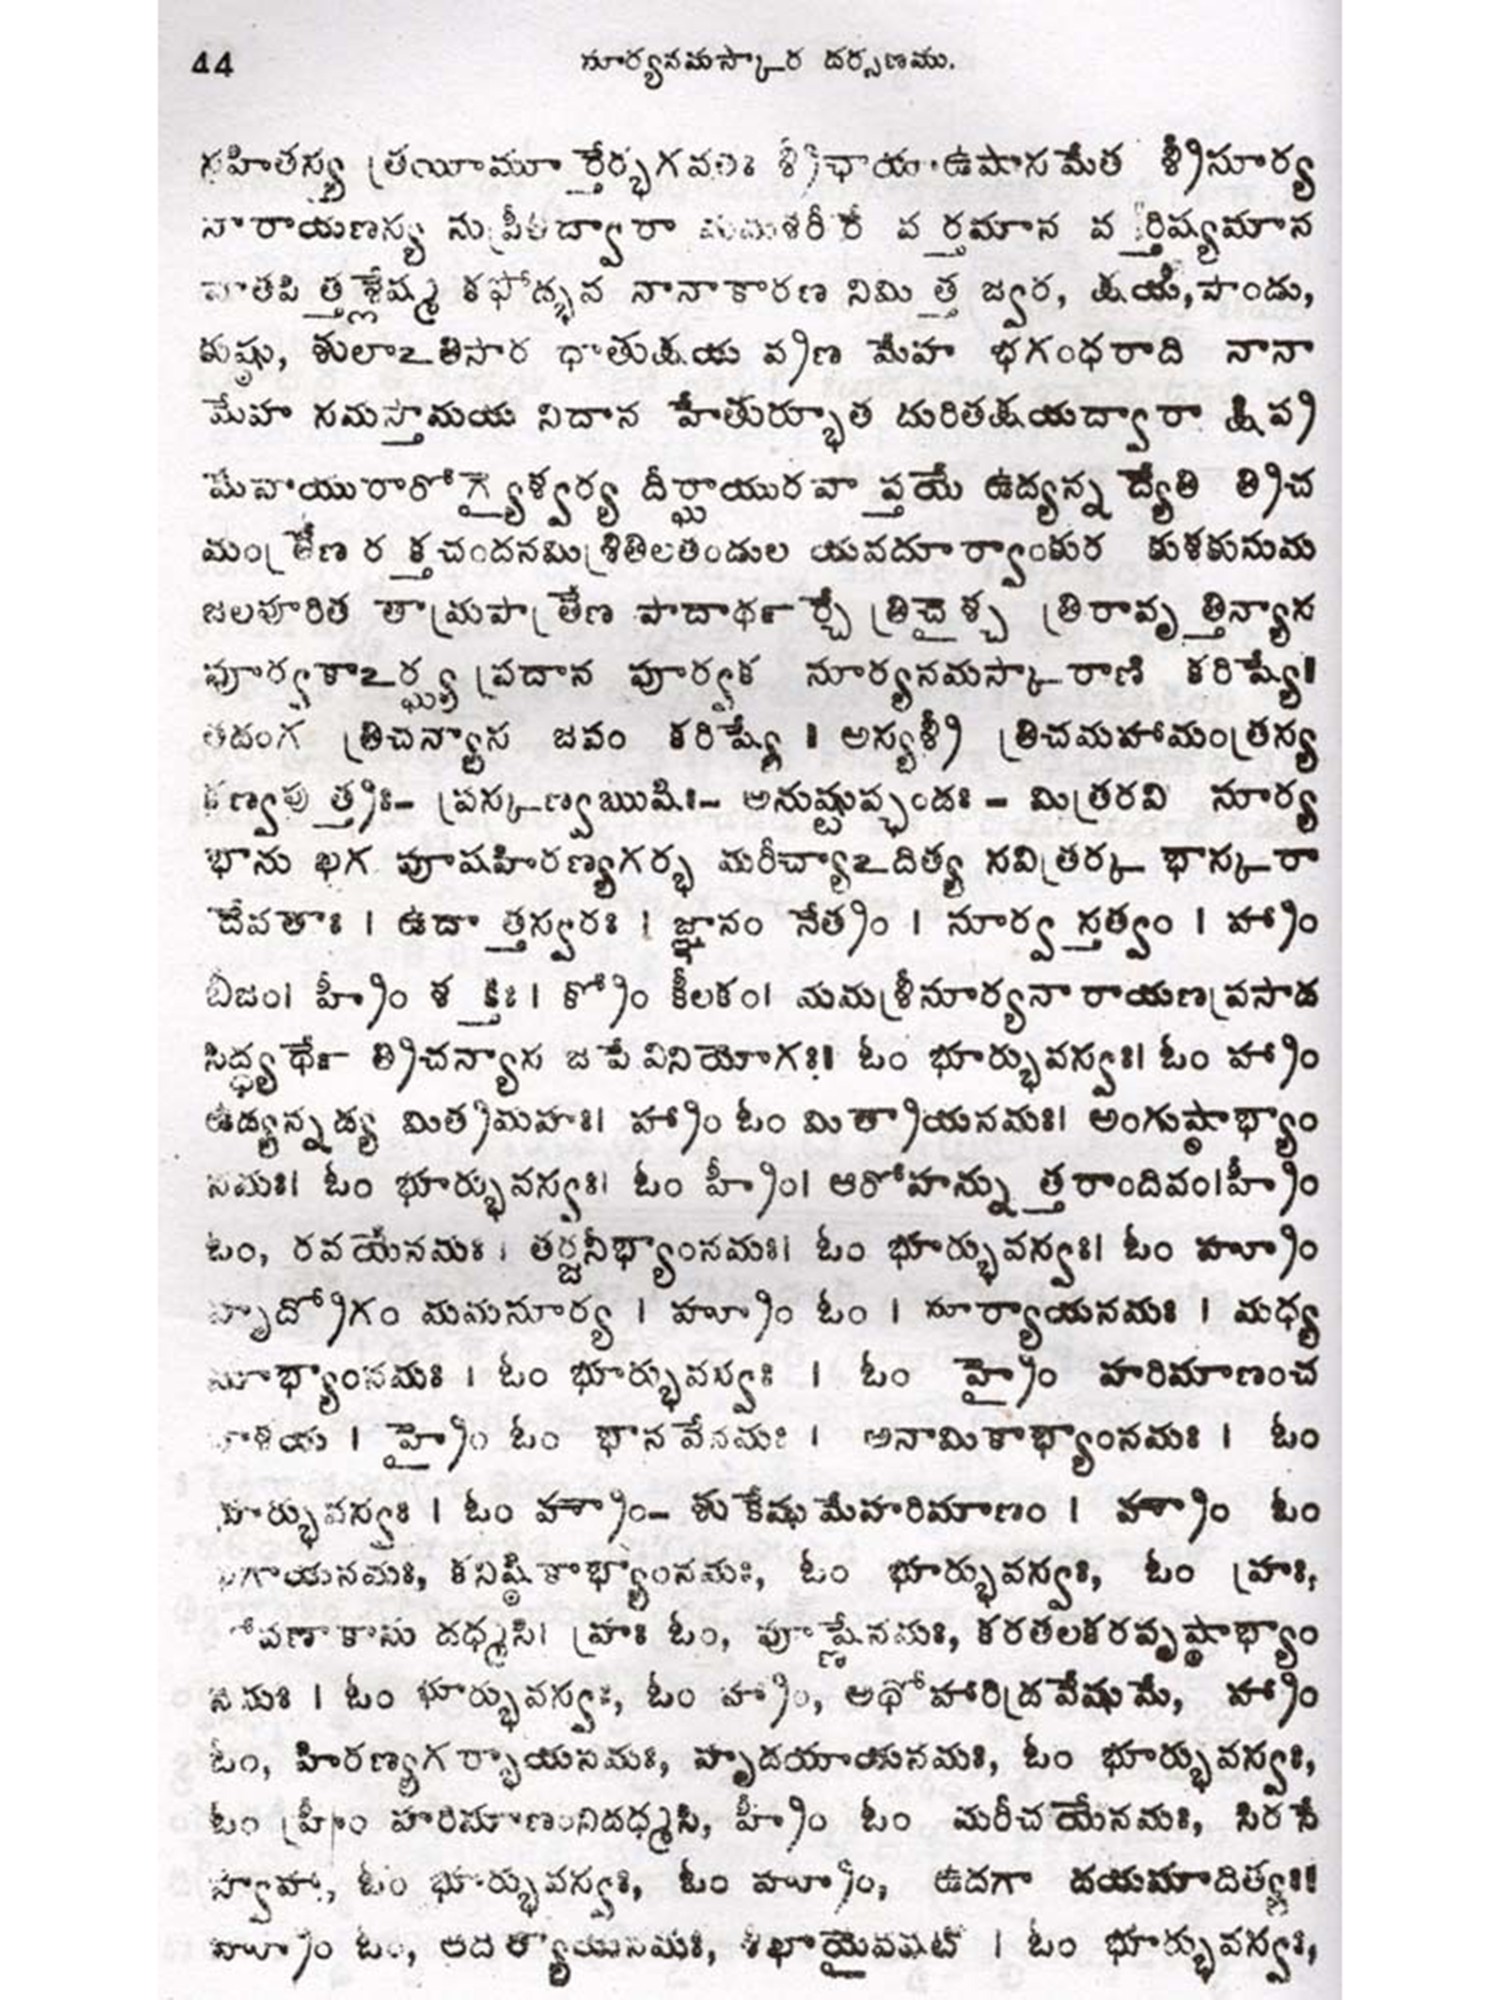 44
సూర్యనమస్కార దర్సణము.
సహితస్య త్రయీమూర్తేర్భగవతః శ్రీఛాయా ఉషాసమేత శ్రీసూర్య
నారాయణస్య సుప్రీతిద్వారా మమశరీరే వర్తమాన వర్తిష్యమాన
వాతపిత్తశ్లేష్మ కఫోద్భవ నానాకారణ నిమిత్త జ్వర, క్షయ, పాండు,
కుష్ఠు, శులాఽతిసార ధాతుక్షయ వ్రణ మేహ భగంధరాది నానా
మేహ సమస్తామయ నిదాన హేతుర్భూత దురితక్షయద్వారా క్షిప్ర
మేవాయురారోగ్యైశ్వర్య దీర్ఘాయురవాప్తయే ఉద్యన్న ద్యేతి త్రిచ
మంత్రేణ రక్తచందనమిశ్రితిలతండుల యవదూర్వాంకుర కుశకుసుమ
జలపూరిత తామ్రపాత్రేణ పాదాథర్చే త్రిచైశ్చ త్రిరావృత్తిన్యాస
పూర్వకాఽర్ఘ్య ప్రదాన పూర్వక సూర్యనమస్కారాణి కరిష్యే।
తదంగ త్రిచన్యాస జపం కరిష్యే । అస్యశ్రీ త్రిచమహామంత్రస్య
కణ్వపుత్త్రః– ప్రస్కణ్వఋషిః– అనుష్టుప్ఛందః – మిత్రరవి సూర్య
భాను ఖగ పూషహిరణ్యగర్భ మరీచ్యాఽదిత్య సవిత్రర్క భాస్కరా
దేవతాః । ఉదాత్తస్వరః । జ్ఞానం నేత్రం । సూర్వస్తత్వం । హ్రాం
బీజం। హ్రీం శక్తిః । క్రోం కీలకం। మమశ్రీసూర్యనారాయణప్రసాద
సిద్ధ్యర్థే త్రిచన్యాస జపే వినియోగః। ఓం భూర్భువస్వః। ఓం హ్రాం
ఉద్యన్నద్య మిత్రమహః। హ్రాం ఓం మిత్రాయనమః। అంగుష్ఠాభ్యాం
నమః। ఓం భూర్భువస్వః। ఓం హ్రీం। ఆరోహన్నుత్తరాందివం।హ్రీం
ఓం, రవయేనమః । తర్జనీభ్యాంనమః। ఓం భూర్భువస్వః। ఓం హ్రూం
హృద్రోగం మమసూర్య । హ్రూం ఓం । సూర్యాయనమః । మధ్య
మాభ్యాంనమః । ఓం భూర్భువస్వః । ఓం హ్రైం హరిమాణంచ
నాశయ । హ్రైం ఓం భానవేనమః । అనామికాభ్యాంనమః । ఓం
భూర్భువస్వః । ఓం హ్రౌం– శుకేషుమేహరిమాణం । హ్రౌం ఓం
ఖగాయనమః, కనిష్ఠికాభ్యాంనమః, ఓం భూర్భువస్వః, ఓం హ్రః,
రోపణాకాసు దధ్మసి। హ్రః ఓం, పూష్ణేనమః, కరతలకరపృష్ఠాభ్యాం
నమః । ఓం భూర్భువస్వః, ఓం హ్రాం, అథోహారిద్రవేషుమే, హ్రాం
ఓం, హిరణ్యగర్భాయనమః, హృదయాయనమః, ఓం భూర్భువస్వః,
ఓం హ్రీం హరిమాణంనిదధ్మసి, హ్రీం ఓం మరీచయేనమః, సిరసే
స్వాహా, ఓం భూర్భువస్వః, ఓం హ్రూం, ఉదగా దయమాదిత్యః।
హ్రూం ఓం, ఆదిత్యాయనమః, శిఖాయైవషట్ । ఓం భూర్భువస్వః,